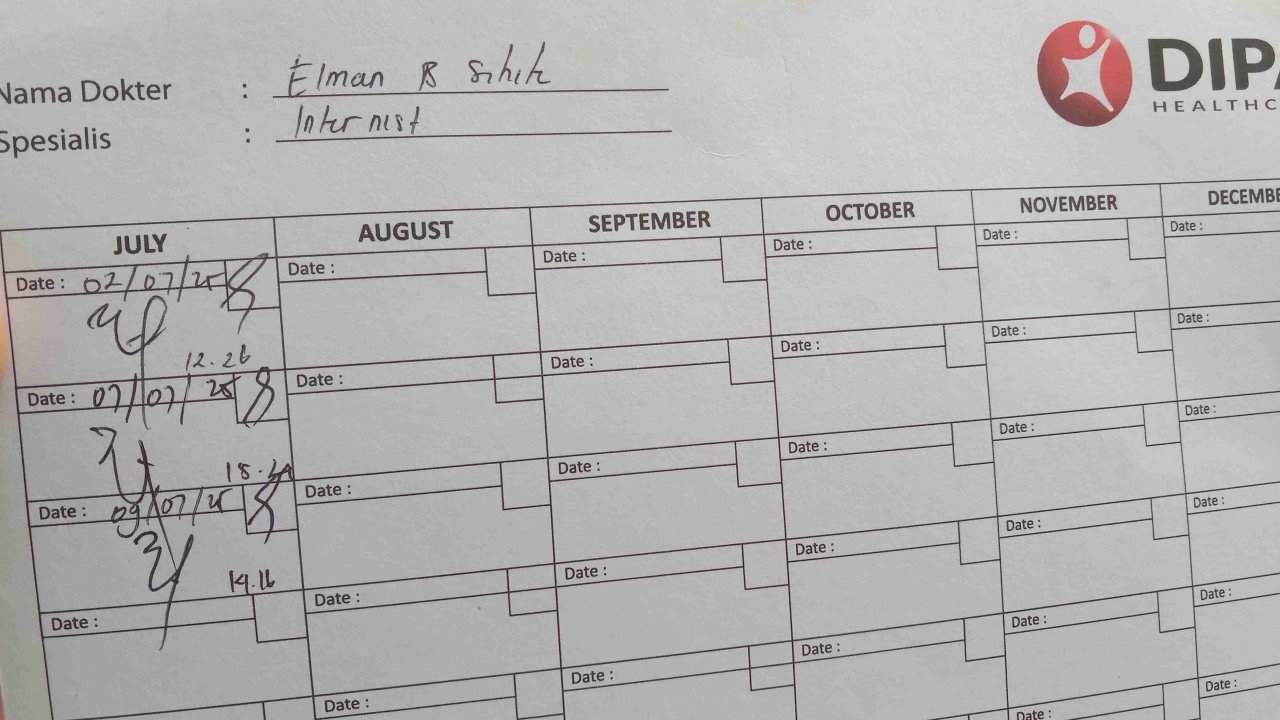 Nama Dokter : Elman B
Spesialis : Internist
DIPA
HEALTHC
JULY AUGUST SEPTEMBER OCTOBER NOVEMBER DECEMBE
Date : 02/07/25 Date : Date : Date : Date : Date :
12.26
Date : 07/07/25 Date : Date : Date : Date : Date :
18.
Date : 09/07/25 Date : Date : Date : Date : Date :
14.16
Date : Date : Date : Date : Date : Date :
Date : Date : Date : Date : Date :
Date :